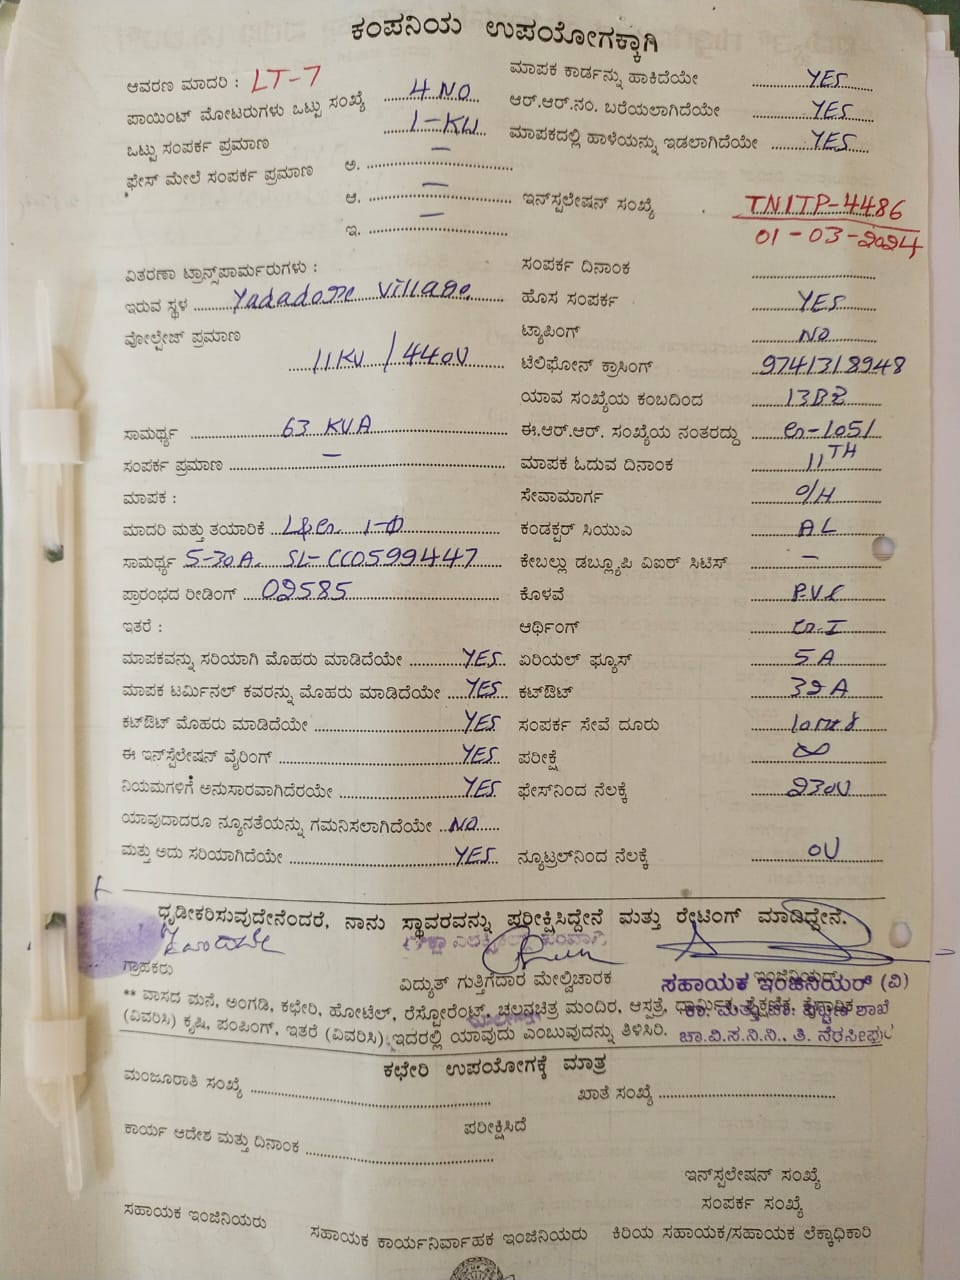 ಕಂಪನಿಯ ಉಪಯೋಗಕ್ಕಾಗಿ
ಆವರಣ ಮಾದರಿ : LT-7
ಪಾಯಿಂಟ್ ಮೋಟರುಗಳು ಒಟ್ಟು ಸಂಖ್ಯೆ 4 NO
ಒಟ್ಟು ಸಂಪರ್ಕ ಪ್ರಮಾಣ 1-KW
ಫೇಸ್ ಮೇಲೆ ಸಂಪರ್ಕ ಪ್ರಮಾಣ ಅ. –
ಆ. –
ಇ. –
ಮಾಪಕ ಕಾರ್ಡನ್ನು ಹಾಕಿದೆಯೇ YES
ಆರ್.ಆರ್.ನಂ. ಬರೆಯಲಾಗಿದೆಯೇ YES
ಮಾಪಕದಲ್ಲಿ ಹಾಳೆಯನ್ನು ಇಡಲಾಗಿದೆಯೇ YES
ಇನ್‌ಸ್ಪಲೇಷನ್ ಸಂಖ್ಯೆ TNITP-4486
01-03-2024
ವಿತರಣಾ ಟ್ರಾನ್ಸ್‌ಪಾರ್ಮರುಗಳು :
ಇರುವ ಸ್ಥಳ Yadadore Village
ವೋಲ್ಟೇಜ್ ಪ್ರಮಾಣ
11KV / 440V
ಸಾಮರ್ಥ್ಯ 63 KVA
ಸಂಪರ್ಕ ಪ್ರಮಾಣ –
ಮಾಪಕ :
ಮಾದರಿ ಮತ್ತು ತಯಾರಿಕೆ 1-Φ
ಸಾಮರ್ಥ್ಯ 5-30A. SL-CC0599447
ಪ್ರಾರಂಭದ ರೀಡಿಂಗ್ 02585
ಇತರೆ :
ಮಾಪಕವನ್ನು ಸರಿಯಾಗಿ ಮೊಹರು ಮಾಡಿದೆಯೇ YES
ಮಾಪಕ ಟರ್ಮಿನಲ್ ಕವರನ್ನು ಮೊಹರು ಮಾಡಿದೆಯೇ YES
ಕಟ್‌ಔಟ್ ಮೊಹರು ಮಾಡಿದೆಯೇ YES
ಈ ಇನ್‌ಸ್ಪೆಲೇಷನ್ ವೈರಿಂಗ್ YES
ನಿಯಮಗಳಿಗೆ ಅನುಸಾರವಾಗಿದೆರಯೇ YES
ಯಾವುದಾದರೂ ನ್ಯೂನತೆಯನ್ನು ಗಮನಿಸಲಾಗಿದೆಯೇ NO
ಮತ್ತು ಅದು ಸರಿಯಾಗಿದೆಯೇ YES
ಸಂಪರ್ಕ ದಿನಾಂಕ
ಹೊಸ ಸಂಪರ್ಕ YES
ಟ್ಯಾಪಿಂಗ್ NO
ಟೆಲಿಫೋನ್ ಕ್ರಾಸಿಂಗ್ 9741318948
ಯಾವ ಸಂಖ್ಯೆಯ ಕಂಬದಿಂದ
ಈ.ಆರ್.ಆರ್. ಸಂಖ್ಯೆಯ ನಂತರದ್ದು
ಮಾಪಕ ಓದುವ ದಿನಾಂಕ 11TH
ಸೇವಾಮಾರ್ಗ O/H
ಕಂಡಕ್ಟರ್ ಸಿಯುಎ AL
ಕೇಬಲ್ಲು ಡಬ್ಲ್ಯೂಪಿ ವಿಐಆರ್ ಸಿಟಿಸ್ –
ಕೊಳವೆ P.V.C
ಆರ್ಥಿಂಗ್
ಏರಿಯಲ್ ಫ್ಯೂಸ್ 5 A
ಕಟ್‌ಔಟ್ 32 A
ಸಂಪರ್ಕ ಸೇವೆ ದೂರು
ಪರೀಕ್ಷೆ ∞
ಫೇಸ್‌ನಿಂದ ನೆಲಕ್ಕೆ 230V
ನ್ಯೂಟ್ರಲ್‌ನಿಂದ ನೆಲಕ್ಕೆ 0V
ಧೃಡೀಕರಿಸುವುದೇನೆಂದರೆ, ನಾನು ಸ್ಥಾವರವನ್ನು ಪರೀಕ್ಷಿಸಿದ್ದೇನೆ ಮತ್ತು ರೇಟಿಂಗ್ ಮಾಡಿದ್ದೇನೆ.
ಗ್ರಾಹಕರು
ವಿದ್ಯುತ್ ಗುತ್ತಿಗೆದಾರ ಮೇಲ್ವಿಚಾರಕ
ಸಹಾಯಕ ಇಂಜಿನಿಯರ್ (ವಿ)
** ವಾಸದ ಮನೆ, ಅಂಗಡಿ, ಕಛೇರಿ, ಹೋಟೆಲ್, ರೆಸ್ಟೋರೆಂಟ್, ಚಲನಚಿತ್ರ ಮಂದಿರ, ಆಸ್ಪತ್ರೆ, ಧಾರ್ಮಿಕ, ಶೈಕ್ಷಣಿಕ, ಕೈಗಾರಿಕ
(ವಿವರಿಸಿ) ಕೃಷಿ, ಪಂಪಿಂಗ್, ಇತರೆ (ವಿವರಿಸಿ) ಇದರಲ್ಲಿ ಯಾವುದು ಎಂಬುವುದನ್ನು ತಿಳಿಸಿರಿ.
ಚಾ.ವಿ.ಸ.ನಿ.ನಿ., ತಿ. ನರಸೀಪುರ
ಕಛೇರಿ ಉಪಯೋಗಕ್ಕೆ ಮಾತ್ರ
ಮಂಜೂರಾತಿ ಸಂಖ್ಯೆ
ಖಾತೆ ಸಂಖ್ಯೆ
ಪರೀಕ್ಷಿಸಿದೆ
ಕಾರ್ಯ ಆದೇಶ ಮತ್ತು ದಿನಾಂಕ
ಇನ್‌ಸ್ಪಲೇಷನ್ ಸಂಖ್ಯೆ
ಸಂಪರ್ಕ ಸಂಖ್ಯೆ
ಸಹಾಯಕ ಇಂಜಿನಿಯರು ಸಹಾಯಕ ಕಾರ್ಯನಿರ್ವಾಹಕ ಇಂಜಿನಿಯರು ಕಿರಿಯ ಸಹಾಯಕ/ಸಹಾಯಕ ಲೆಕ್ಕಾಧಿಕಾರಿ